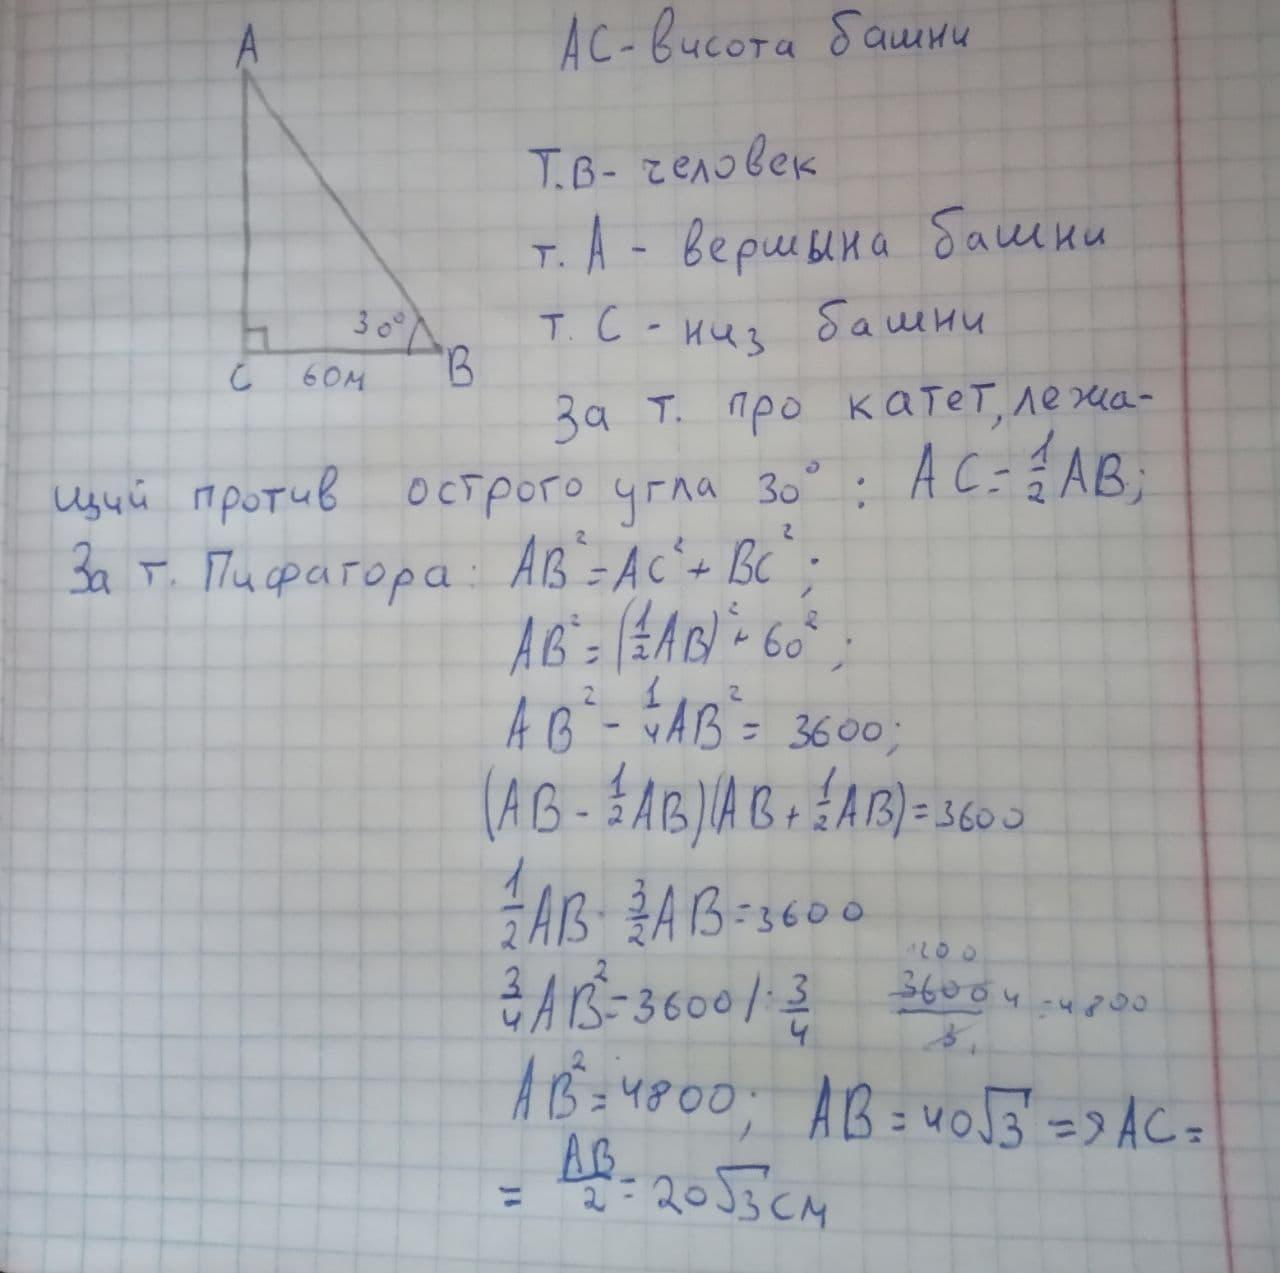 A
АС - висота башни
Т. В - человек
т. А - вершына башни
30°
т. С - низ башни
С 60м В
За т. про катет, лежа-
щий против острого угла 30°: AC = 1/2 AB;
За т. Пифагора: AB² = AC² + BC²;
AB² = (1/2 AB)² + 60²;
AB² - 1/4 AB² = 3600;
(AB - 1/2 AB)(AB + 1/2 AB) = 3600
1/2 AB · 3/2 AB = 3600
3/4 AB² = 3600 /: 3/4
1200
3600 · 4 / 3 = 4800
1
AB² = 4800; AB = 40√3 => AC =
= AB/2 = 20√3 см